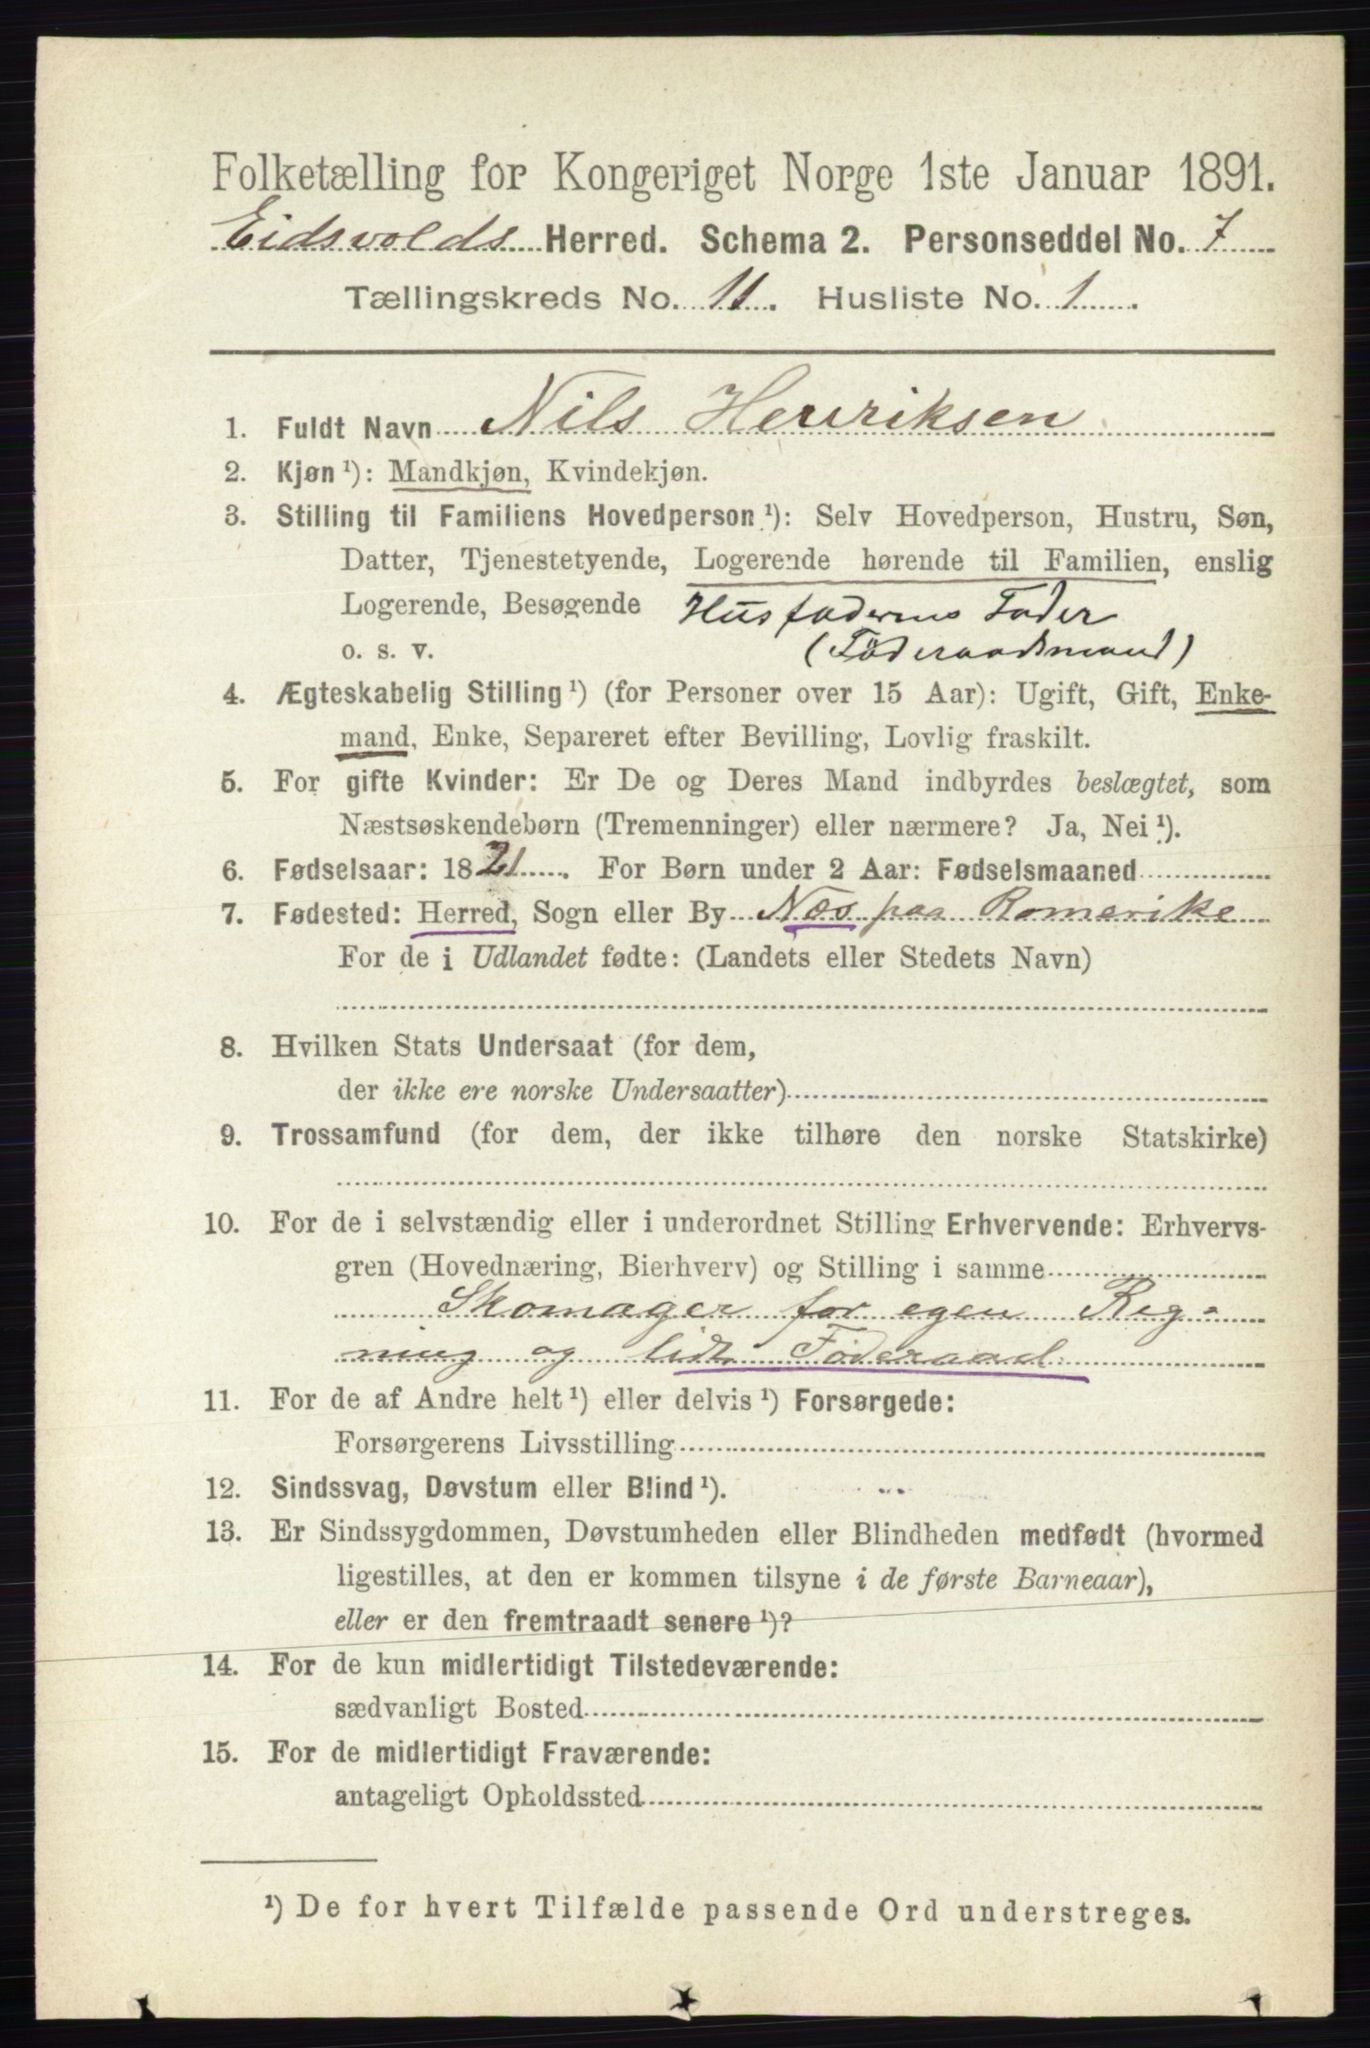 Folketælling for Kongeriget Norge 1ste Januar 1891.
Eidsvolds Herred. Schema 2. Personseddel No. 7
Tællingskreds No. 11. Husliste No. 1.
1. Fuldt Navn Nils Henriksen
2. Kjøn ¹): Mandkjøn, Kvindekjøn.
3. Stilling til Familiens Hovedperson ¹): Selv Hovedperson, Hustru, Søn,
Datter, Tjenestetyende, Logerende hørende til Familien, enslig
Logerende, Besøgende Husfaderens Fader
o. s. v. (Föderaadsmand)
4. Ægteskabelig Stilling ¹) (for Personer over 15 Aar): Ugift, Gift, Enke-
mand, Enke, Separeret efter Bevilling, Lovlig fraskilt.
5. For gifte Kvinder: Er De og Deres Mand indbyrdes beslægtet, som
Næstsøskendebørn (Tremenninger) eller nærmere? Ja, Nei ¹).
6. Fødselsaar: 1821. For Børn under 2 Aar: Fødselsmaaned
7. Fødested: Herred, Sogn eller By Næs paa Romerike
For de i Udlandet fødte: (Landets eller Stedets Navn)
8. Hvilken Stats Undersaat (for dem,
der ikke ere norske Undersaatter)
9. Trossamfund (for dem, der ikke tilhøre den norske Statskirke)
10. For de i selvstændig eller i underordnet Stilling Erhvervende: Erhvervs-
gren (Hovednæring, Bierhverv) og Stilling i samme
Skomager for egen Reg-
ning og lidt Föderaad
11. For de af Andre helt ¹) eller delvis ¹) Forsørgede:
Forsørgerens Livsstilling
12. Sindssvag, Døvstum eller Blind ¹).
13. Er Sindssygdommen, Døvstumheden eller Blindheden medfødt (hvormed
ligestilles, at den er kommen tilsyne i de første Barneaar),
eller er den fremtraadt senere ¹)?
14. For de kun midlertidigt Tilstedeværende:
sædvanligt Bosted
15. For de midlertidigt Fraværende:
antageligt Opholdssted
¹) De for hvert Tilfælde passende Ord understreges.